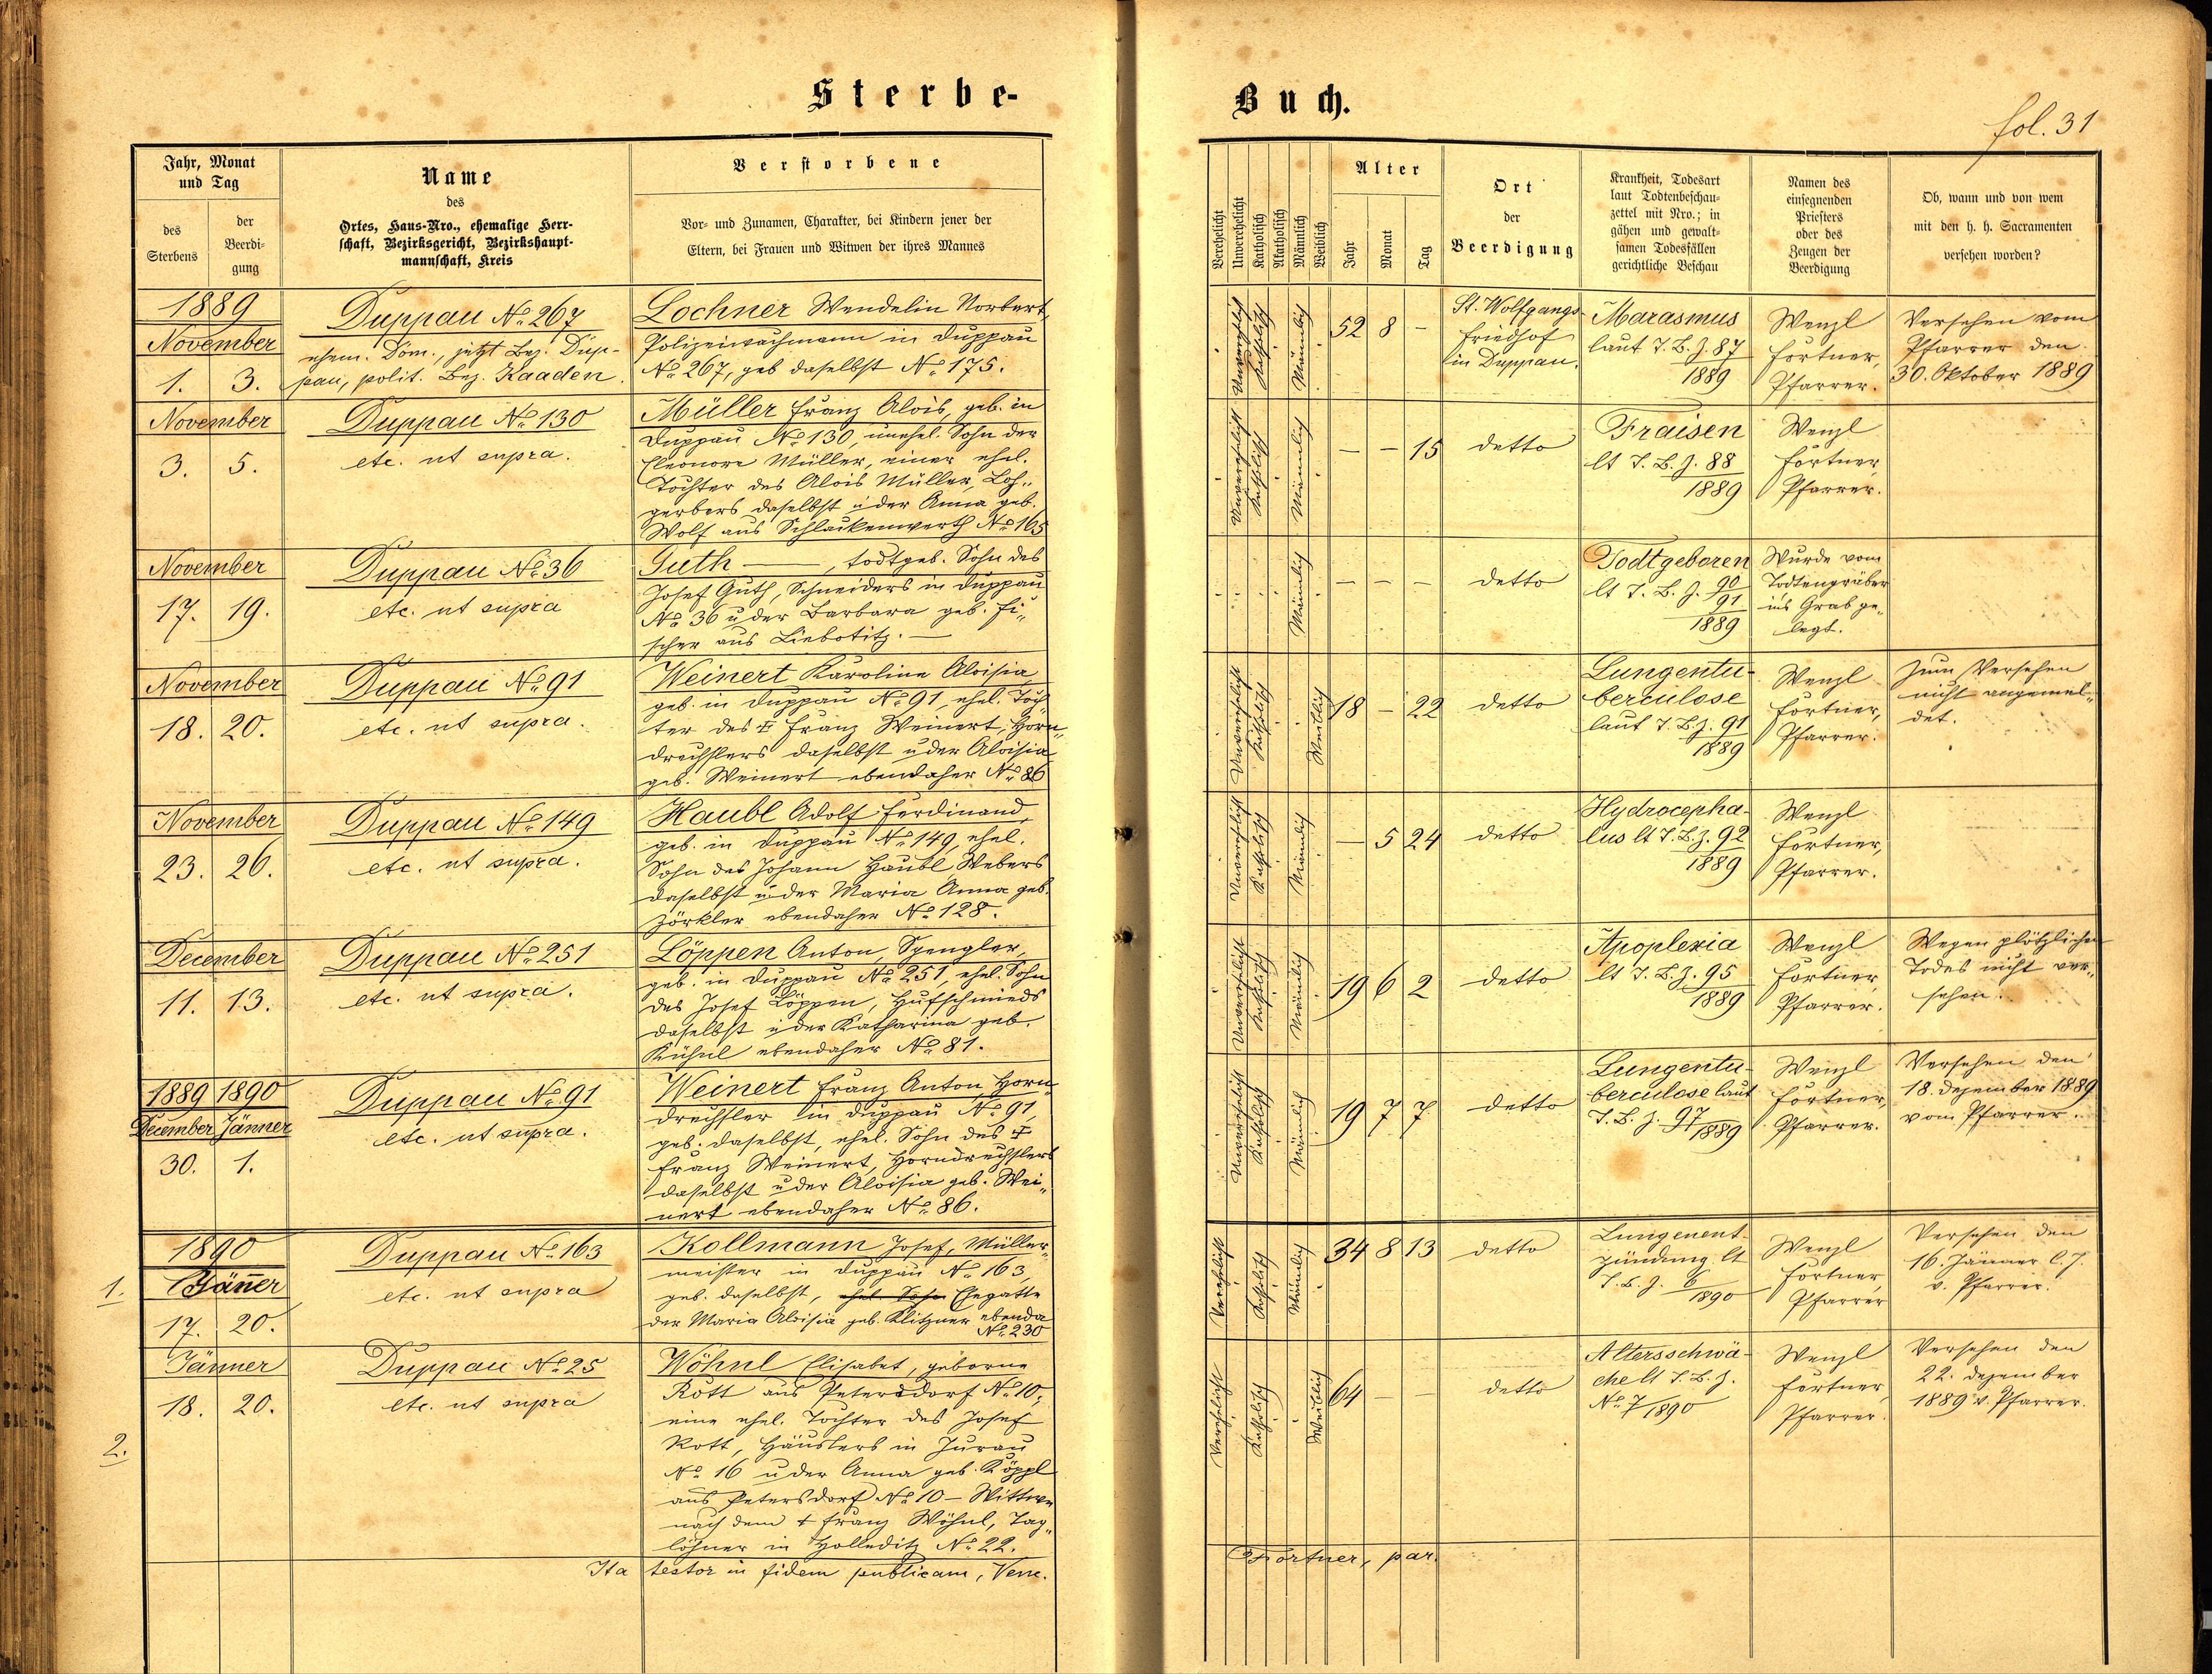 Sterbe-
Buch.
fol. 31
Jahr, Monat
und Tag
des
Sterbens
der
Beerdi-
gung
Name
des
Ortes, Haus-Nro., ehemalige Herr-
schaft, Bezirksgericht, Bezirkshaupt-
mannschaft, Kreis
Verstorbene
Vor- und Zunamen, Charakter, bei Kindern jener der
Eltern, bei Frauen und Witwen der ihres Mannes
Verehelicht
Unverehelicht
Katholisch
Akatholisch
Männlich
Weiblich
Alter
Jahr
Monat
Tag
Ort
der
Beerdigung
Krankheit, Todesart
laut Todtenbeschau-
zettel mit Nro.; in
gähen und gewalt-
samen Todesfällen
gerichtliche Beschau
Namen des
einsegnenden
Priesters
oder des
Zeugen der
Beerdigung
Ob, wann und von wem
mit den h. h. Sacramenten
versehen worden?
1889
November
1. 3.
Duppau No 267
ehem. Dom., jetzt Bez. Dup-
pau, polit. Bez. Kaaden.
Lochner Wendelin Norbert,
Polizeiwachmann in Duppau
No 267, geb daselbst No 175.
Unverehelicht
Katholisch
Männlich
52 8 –
St. Wolfgangs-
friedhof
in Duppau.
Marasmus
laut T. B. Z. 87
1889
Wenzl
Förtner,
Pfarrer.
Versehen vom
Pfarrer den
30. Oktober 1889
November
3. 5.
Duppau No 130
etc. ut supra.
Müller Franz Alois, geb. in
Duppau No 130, unehel. Sohn der
Eleonore Müller, einer ehel.
Tochter des Alois Müller, Loh-
gerbers daselbst u der Anna geb.
Wolf aus Schlackenwerth No 165
Unverehelicht
Katholisch
Männlich
– – 15
detto
Fraisen
lt T. B. Z. 88
1889
Wenzl
Förtner,
Pfarrer.
November
17. 19.
Duppau No 36
etc. ut supra
Guth —, todtgeb. Sohn des
Josef Guth, Schneiders in Duppau
No 36 u der Barbara geb. Fi-
scher aus Liebotitz. —
Männlich
– – –
detto
Todtgeboren
lt T. B. Z. 90
91
1889
Wurde vom
Todtengräber
ins Grab ge-
legt.
November
18. 20.
Duppau No 91
etc. ut supra.
Weinert Karoline Aloisia,
geb. in Duppau No 91, ehel. Toch-
ter des ‡ Franz Weinert, Horn-
drechslers daselbst u der Aloisia
geb. Weinert ebendaher No 86
Unverehelicht
Katholisch
Weiblich
18 – 22
detto
Lungentu-
berculose
laut T. B. Z. 91
1889
Wenzl
Förtner,
Pfarrer.
Zum Versehen
nicht angemel-
det.
November
23. 26.
Duppau No 149
etc. ut supra.
Haubl Adolf Ferdinand
geb. in Duppau No 149, ehel.
Sohn des Johann Haubl Webers
daselbst u der Maria Anna geb.
Zörkler ebendaher No 128.
Unverehelicht
Katholisch
Männlich
– 5 24
detto
Hydrocepha-
lus lt T. B. Z. 92
1889
Wenzl
Förtner,
Pfarrer.
December
11. 13.
Duppau No 251
etc. ut supra.
Löppen Anton, Spengler,
geb. in Duppau No 251, ehel. Sohn
des Josef Löppen, Hufschmieds
daselbst u der Katharina geb.
Kühnl ebendaher No 81.
Unverehelicht
Katholisch
Männlich
19 6 2
detto
Apoplexia
lt T. B. Z. 95
1889
Wenzl
Förtner
Pfarrer.
Wegen plötzlichen
Todes nicht ver-
sehen.
1889 1890
December Jänner
30. 1.
Duppau No 91
etc. ut supra.
Weinert Franz Anton Horn-
drechsler in Duppau No 91,
geb. daselbst, ehel. Sohn des ‡
Franz Weinert, Horndrechslers
daselbst u der Aloisia geb. Wei-
nert ebendaher No 86.
Unverehelicht
Katholisch
Männlich
19 7 7
detto
Lungentu-
berculose laut
T. B. Z. 97/1889
Wenzl
Förtner,
Pfarrer.
Versehen den
18. Dezember 1889
vom Pfarrer.
1.
1890
Jänner
17. 20.
Duppau No 163
etc. ut supra
Kollmann Josef, Müller-
meister in Duppau No 163,
geb. daselbst, ehel. Sohn Ehegatte
der Maria Aloisia geb. Klitzner ebenda
No 230
Verehelicht
Katholisch
Männlich
34 8 13
detto
Lungenent-
zündung lt
T. B. Z. 6/1890
Wenzl
Förtner,
Pfarrer
Versehen den
16. Jänner l. J.
v. Pfarrer.
2.
Jänner
18. 20.
Duppau No 25
etc. ut supra
Wöhnl Elisabet, geborne
Rott aus Petersdorf No 10,
eine ehel. Tochter des Josef
Rott, Häuslers in Jurau
No 16 u der Anna geb. Köppl
aus Petersdorf No 10 – Wittwe
nach dem † Franz Wöhnl, Tag-
löhner in Holleditz No 22.
Verehelicht
Katholisch
Weiblich
64 – –
detto
Altersschwä-
che lt T. B. Z.
No 7/1890
Wenzl
Förtner,
Pfarrer.
Versehen den
22. Dezember
1889 v. Pfarrer.
Ita testor in fidem publicam, Venc.
Förtner, par.